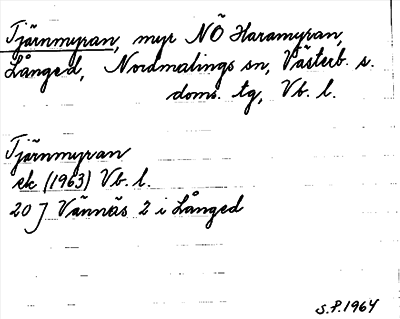 Tjärnmyran, myr NÖ Haramyran,
Långed, Nordmalings sn, Västerb. s.
doms. tg, Vb. l.
Tjärnmyran
ek (1963) Vb. l.
20 J Vännäs 2 i Långed
S.P. 1964